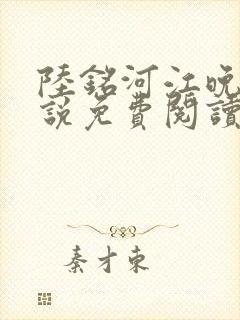 陸銘河江晚
說免費閱讀
秦才東